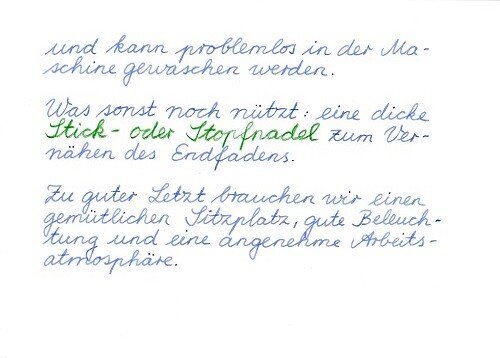 und kann problemlos in der Ma-
schine gewaschen werden.
Was sonst noch nützt: eine dicke
Stick- oder Stopfnadel zum Ver-
nähen des Endfadens.
Zu guter Letzt brauchen wir einen
gemütlichen Sitzplatz, gute Beleuch-
tung und eine angenehme Arbeits-
atmosphäre.